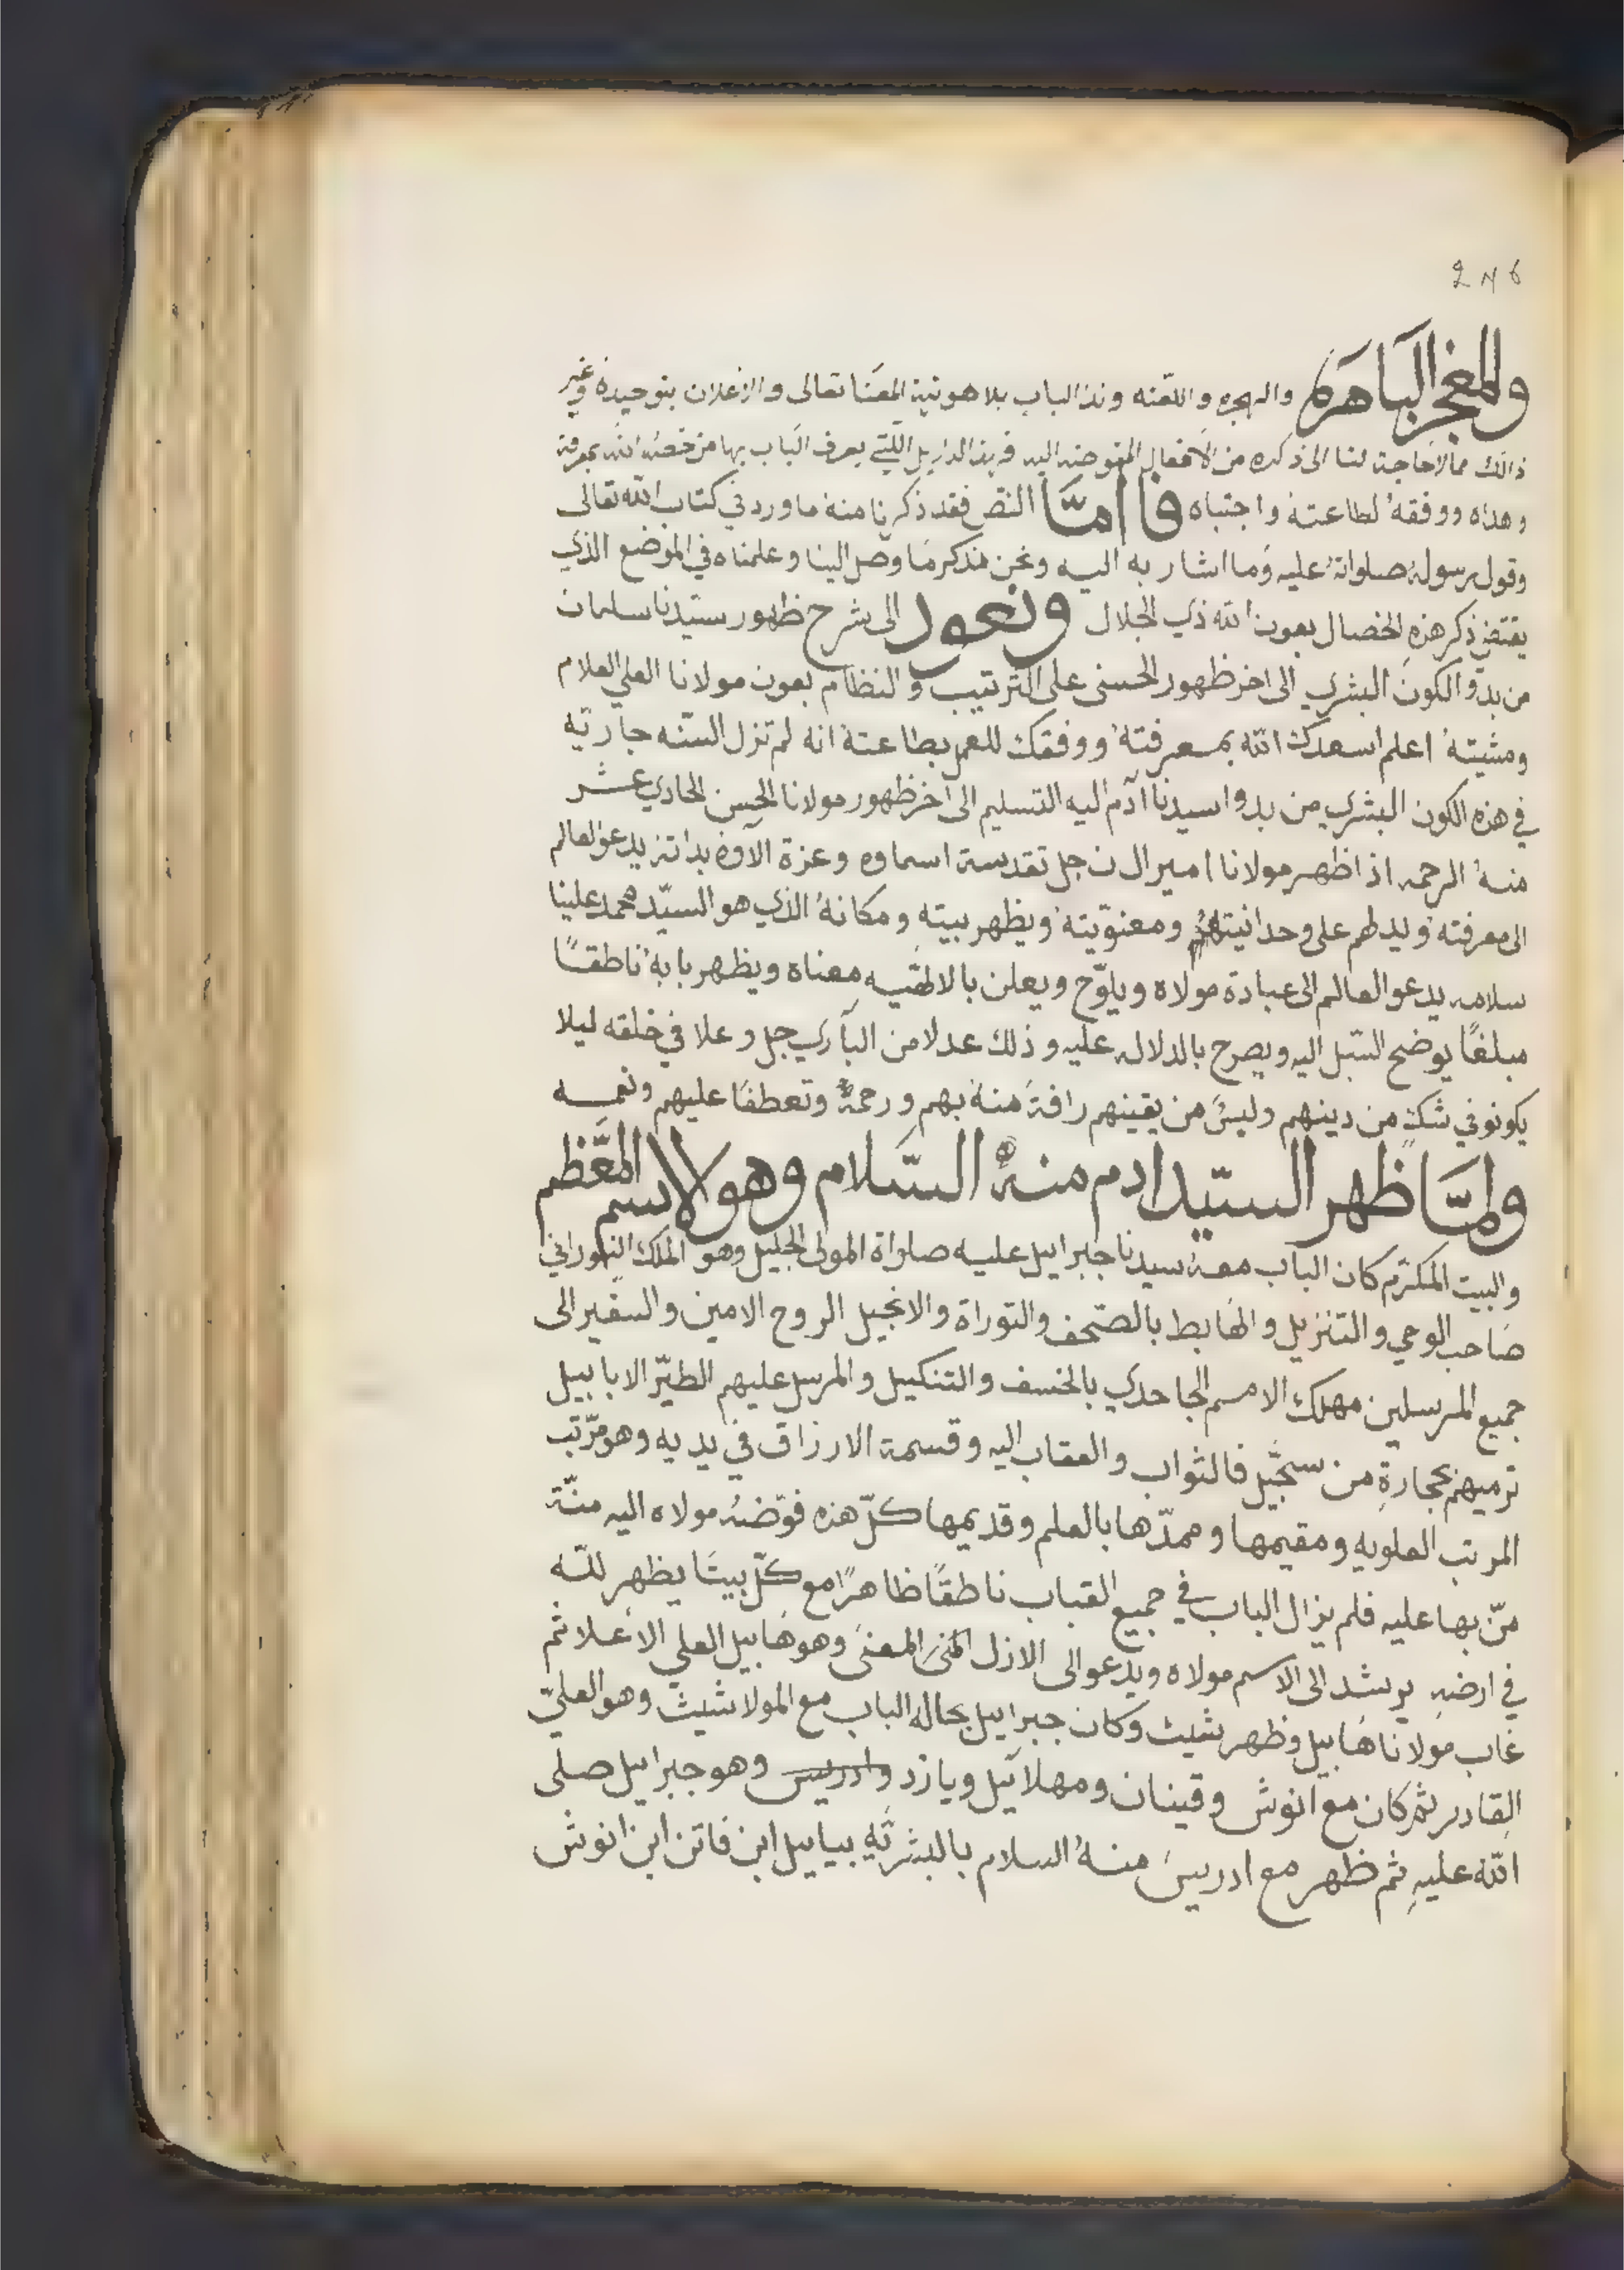 246
والمعجز الباهرة والبهجه واللغنه وندا الباب بلاهوتية المعنا تعالى والاعلان بتوحيده وغير
ذالك مما لا حاجة لنا الى ذكره من الافعال المفوضه اليه فهذا الدلايل اللتي يعرف الباب بها من خصه الله بمعرفته
وهداه ووفقه لطاعته واجتباه فاامّا النص فقد ذكرنا منه ما ورد في كتاب الله تعالى
وقول رسوله صلواته عليه وما اشار به اليه ونحن نذكر ما وصل الينا وعلمناه في الموضع الذي
يقتضي ذكر هذه الخصال بعون الله ذي الجلال ونعود الى شرح ظهور سيّدنا سلمان
من بدّو الكون البشري الى اخر ظهور الحسنى على الترتيب والنظام بعون مولانا العلي العلام
ومشيته اعلم اسعدك الله بمعرفته ووفقك للعمل بطاعته انه لم تزل السنّه جاريّه
في هذه الكون البشري من بدوا سيدنا آدم اليه التسليم الى آخر ظهور مولانا الحسن الحادي عشر
منه الرحمه اذا ظهر مولانا امير ال ن جل تقدسة اسماوه وعزة الآوه بذاته يدعو العالم
الى معرفته ويدلهم على وحدانيته ومعنويّته ويظهر بيته ومكانه الذي هو السيّد محمد علينا
سلامه يدعو العالم الى عبادة مولاه ويلوّح ويعلن بالالهيّه معناه ويظهر بابه ناطقًا
مبلغًا يوضح السّبل اليه ويصرح بالدلاله عليه وذلك عدلا من البآري جل وعلا في خلقه ليلا
يكونو في شك من دينهم ولبس من يقينهم رافة منه بهم ورحمة وتعطفًا عليهم ونعمه
ولمّا ظهر السيّد ادم منه السّلام وهو لاسم المعَّظم
والبيت المكرّم كان الباب معه سيدنا جبراييل عليه صلواة المولى الجليل وهو الملك النوراني
صاحب الوحي والتنزيل والهابط بالصّحف والتوراة والانجيل الروح الامين والسفير الى
جميع المرسلين مهلك الامم الجاحدي بالخسف والتنكيل والمرسل عليهم الطيّر الابابيل
ترميهم بحجارةٍ من سجّيل فالثواب والعقاب اليه وقسمة الارزاق في يديه وهو مرّتب
المرتب العلويه ومقيمها وممدّها بالعلم وقديمها كلّ هذه فوّضه مولاه اليه منّة
منّ بها عليه فلم يزال الباب في جميع القباب ناطقًا ظاهرًا مع كلّ بيتًا يظهر للّه
في ارضه يرشد الى الاسم مولاه ويدّعو الى الازل المعنى وهو هابيل العلي الاعلا ثم
غاب مولانا هابيل وظهر بشيث وكان جبراييل بحاله الباب مع المولا شيث وهو العليّ
القادر ثم كان مع انوش وقينان ومهلآئيل ويازد وادريس وهو جبراييل صلى
اللّه عليه ثم ظهر مع ادريس منه السلام بالبشريّه بياييل ابن فاتن ابن انوش